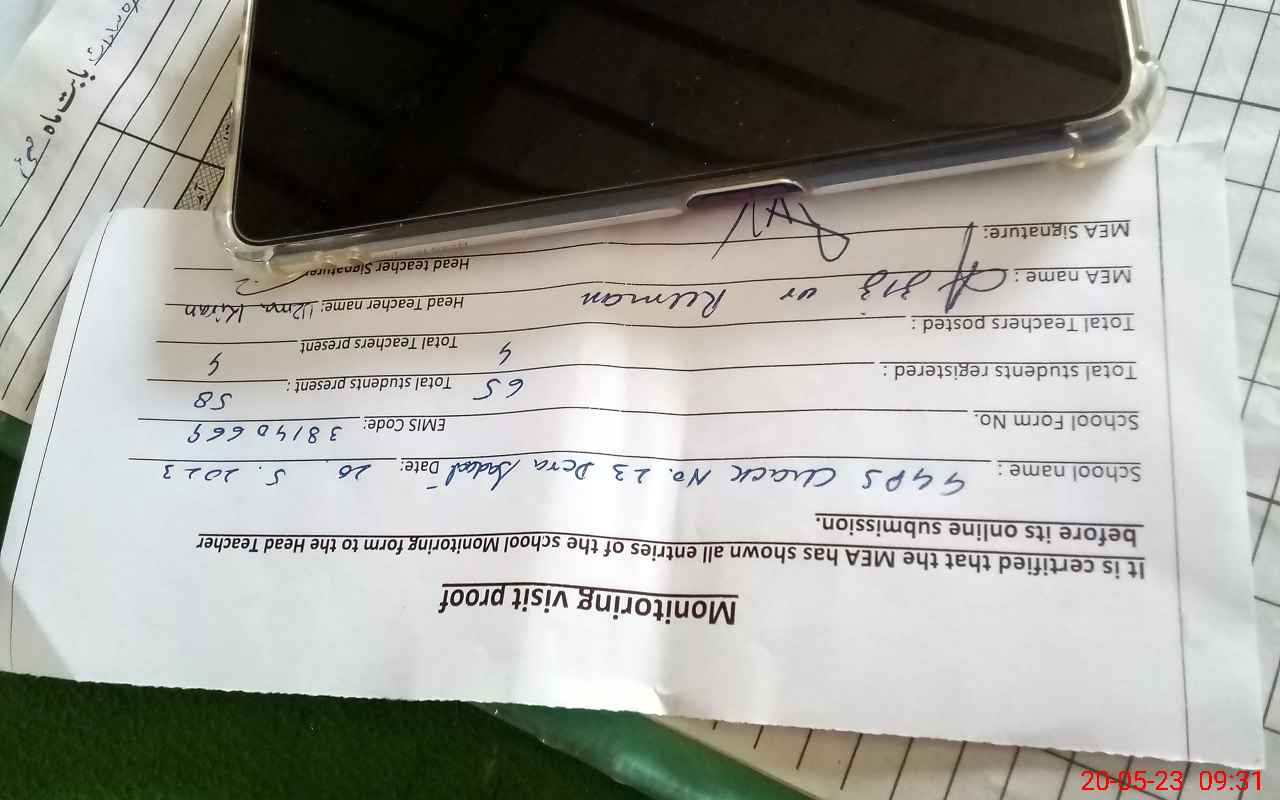 Monitoring visit proof
It is certified that the MEA has shown all entries of the school Monitoring form to the Head Teacher
before its online submission.
School name : GGPS Chack No. 23 Dera Date: 20. 5. 2023
School Form No. EMIS Code: 38140669
Total students registered : 65 Total students present : 58
Total Teachers posted : 4 Total Teachers present 4
MEA name : ur Rehman Head Teacher name: Kiran
MEA Signature: Head teacher Signature
بابت ماہ مئی
20-05-23 09:31